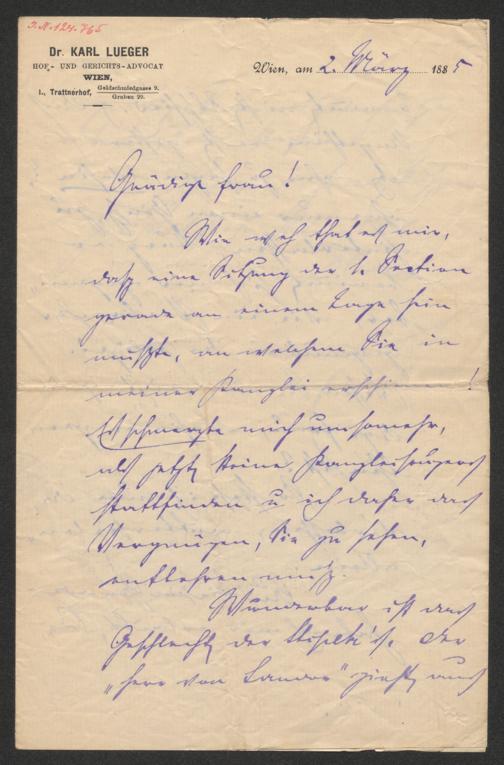 I.N. 124.765
Dr. KARL LUEGER
HOF- UND GERICHTS-ADVOCAT
WIEN,
I., Trattnerhof, Goldschmiedgasse 9.
Graben 29.
Wien, am 2. März 1885
Gnädige Frau!
Wie weh that es mir,
daß eine Sitzung der 1. Section
gerade an einem Tage sein
mußte, an welchem Sie in
meiner Kanzlei erschienen!
Es schmerzte mich umsomehr,
als jetzt keine
stattfinden u ich daher das
Vergnügen, Sie zu sehen,
entbehren muß.
Wunderbar ist das
Geschlecht der Der
„Herr von Landor" zieht aus